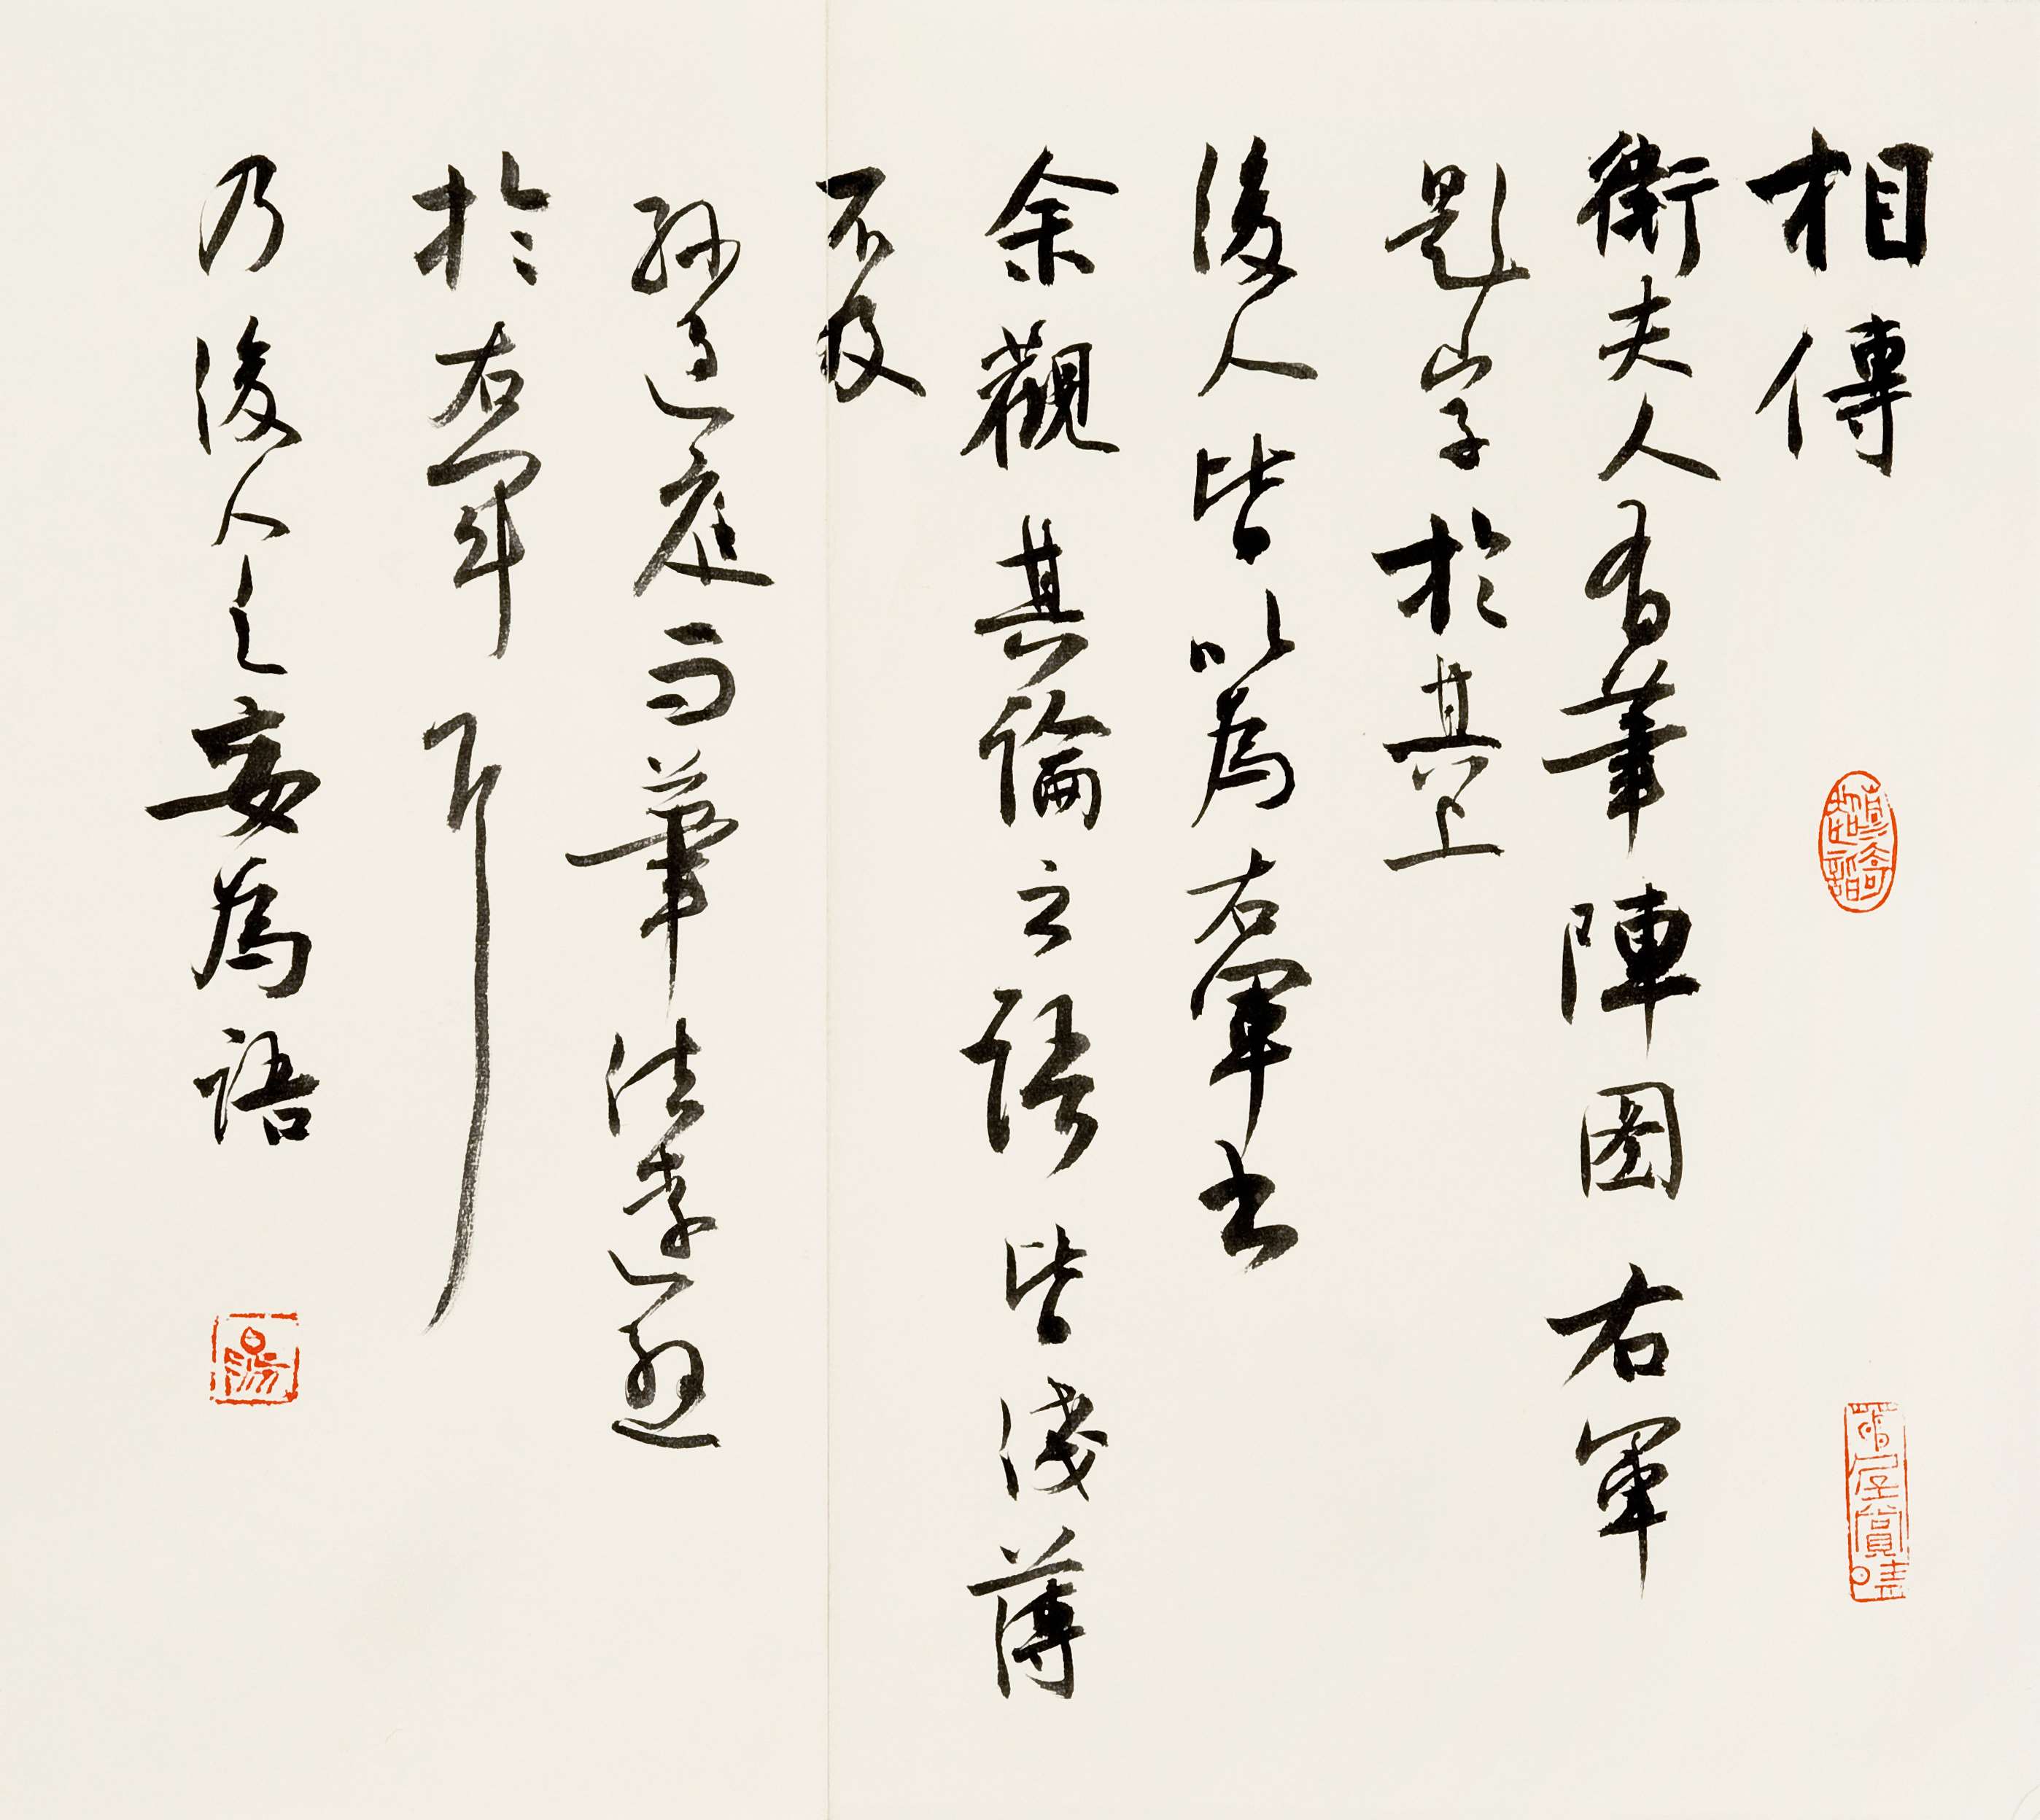 相傳
衛夫人有筆陣圖右軍
題字於其上
後人皆以為右軍書
余觀其論之語皆淺薄
不及
孫過庭而筆法遠遜
於右軍耳
乃後人之妄為語